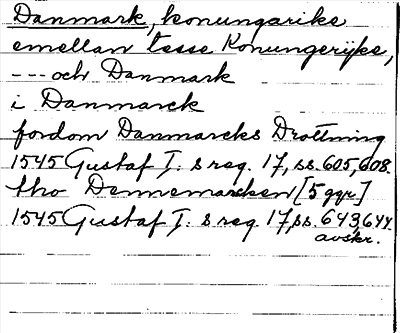 Danmark, konungarike
emellan tesse Konungerijke,
--- och Danmark
i Danmarck
fordom Danmarcks Drottning
1545 Gustaf I: s reg. 17, ss. 605, 608.
tho Dennemarcken [5 ggr]
1545 Gustaf I: s reg. 17, ss. 643, 644
avskr.